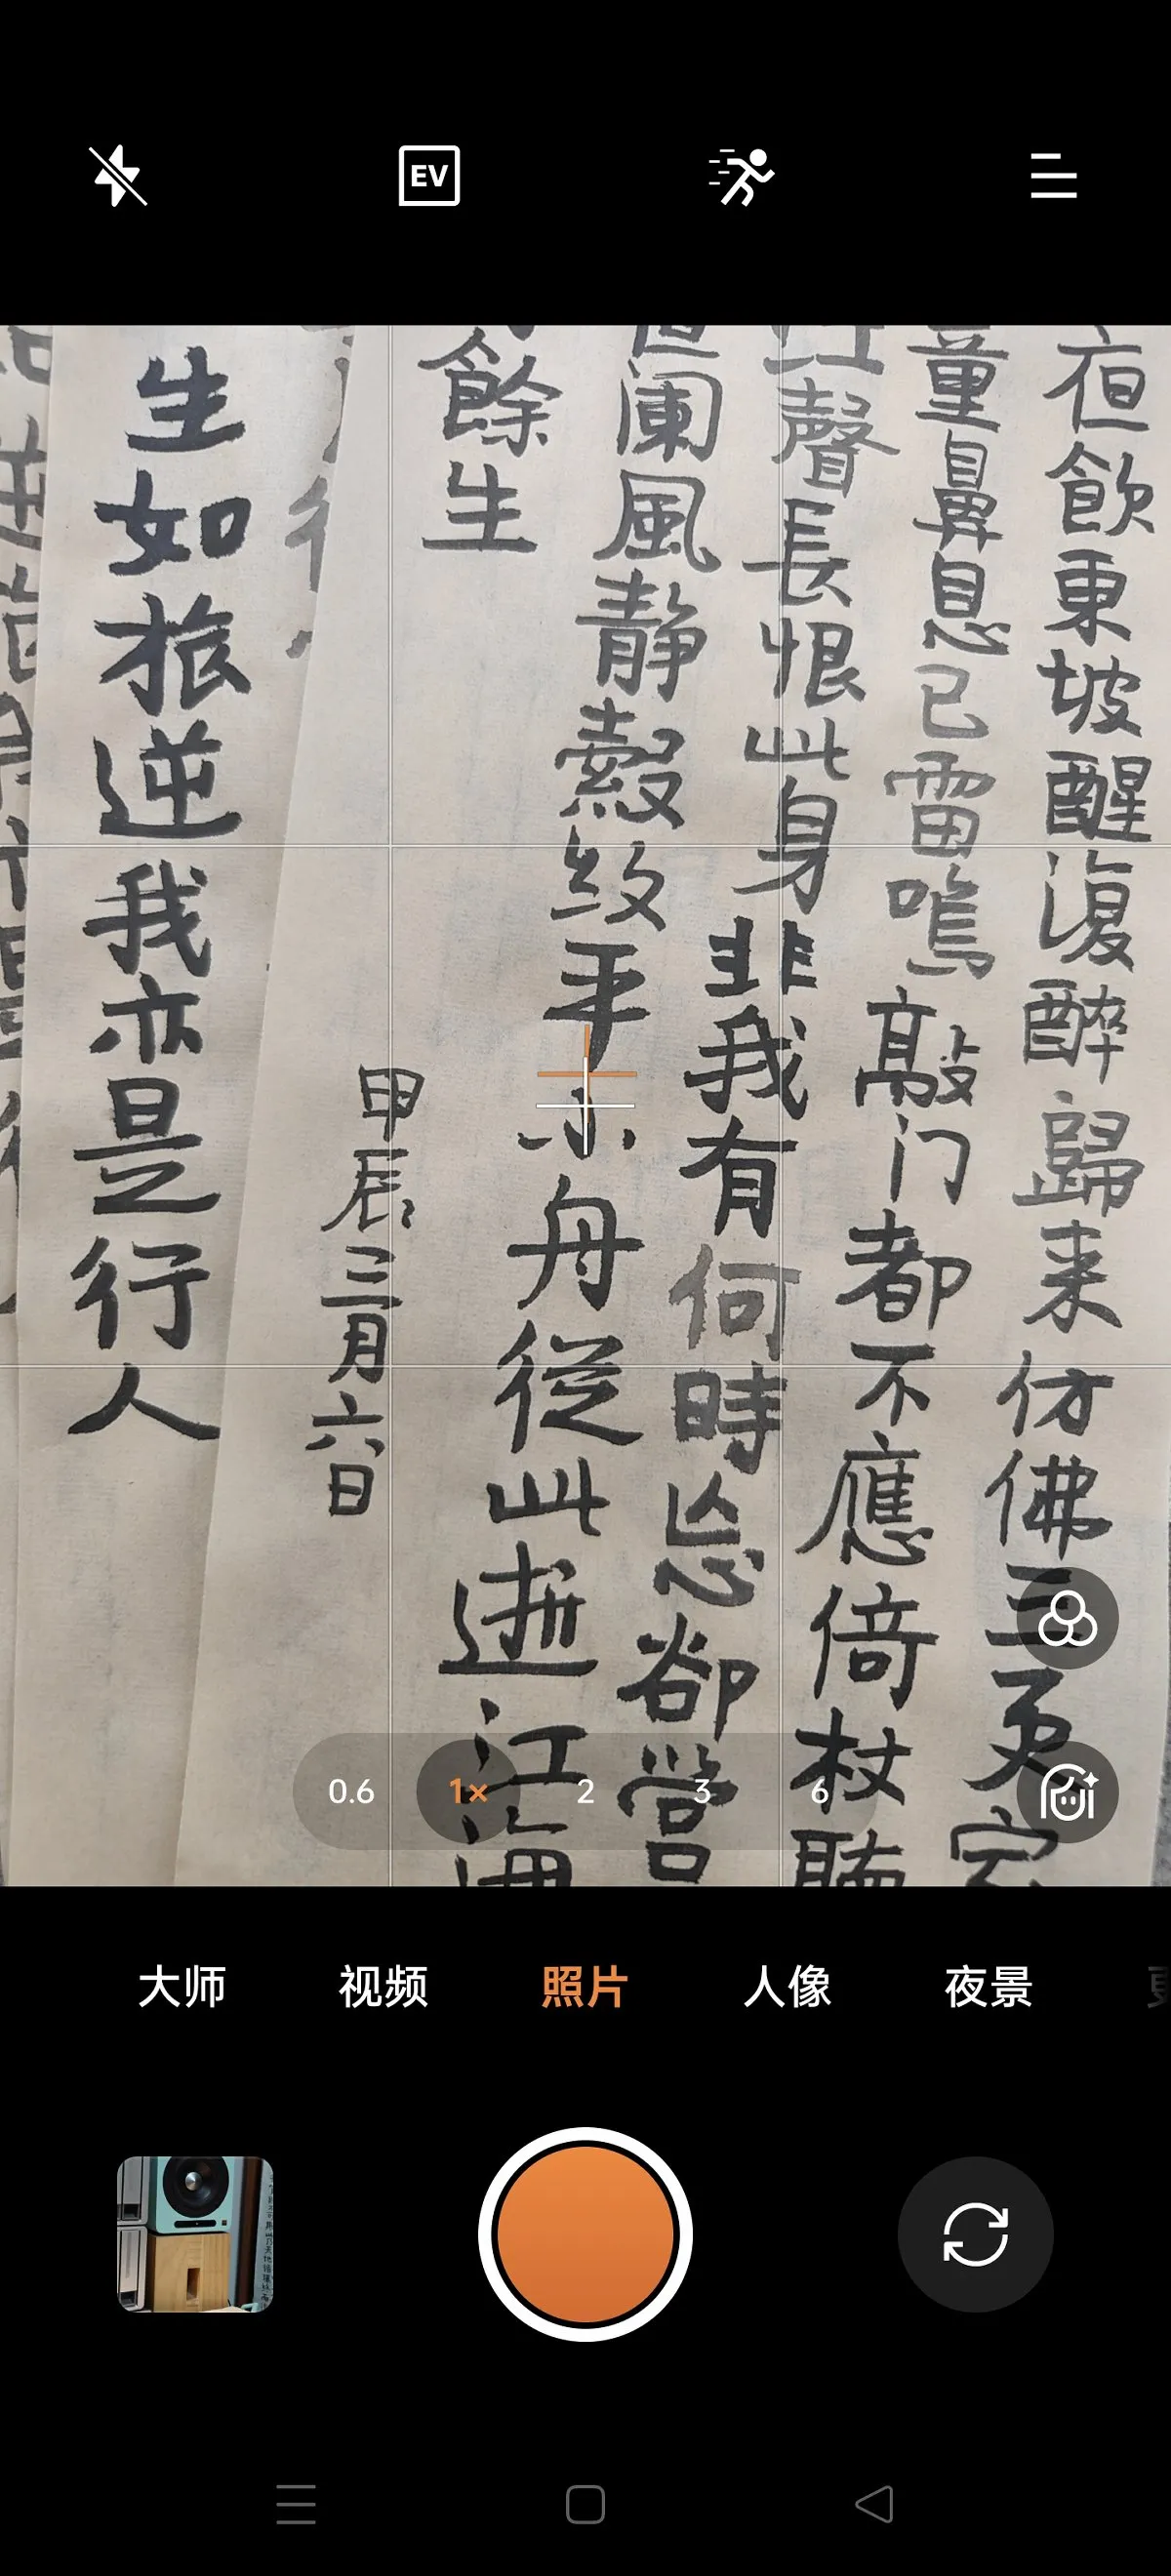 EV
夜飲東坡醒復醉歸来仿佛三更家
童鼻息已雷鳴敲门都不應倚杖聽
江聲長恨此身非我有何時忘卻營
闌風静縠紋平小舟從此逝江海
餘生
甲辰三月六日
生如旅逆我亦是行人
0.6 1× 2 3 6
大师 视频 照片 人像 夜景